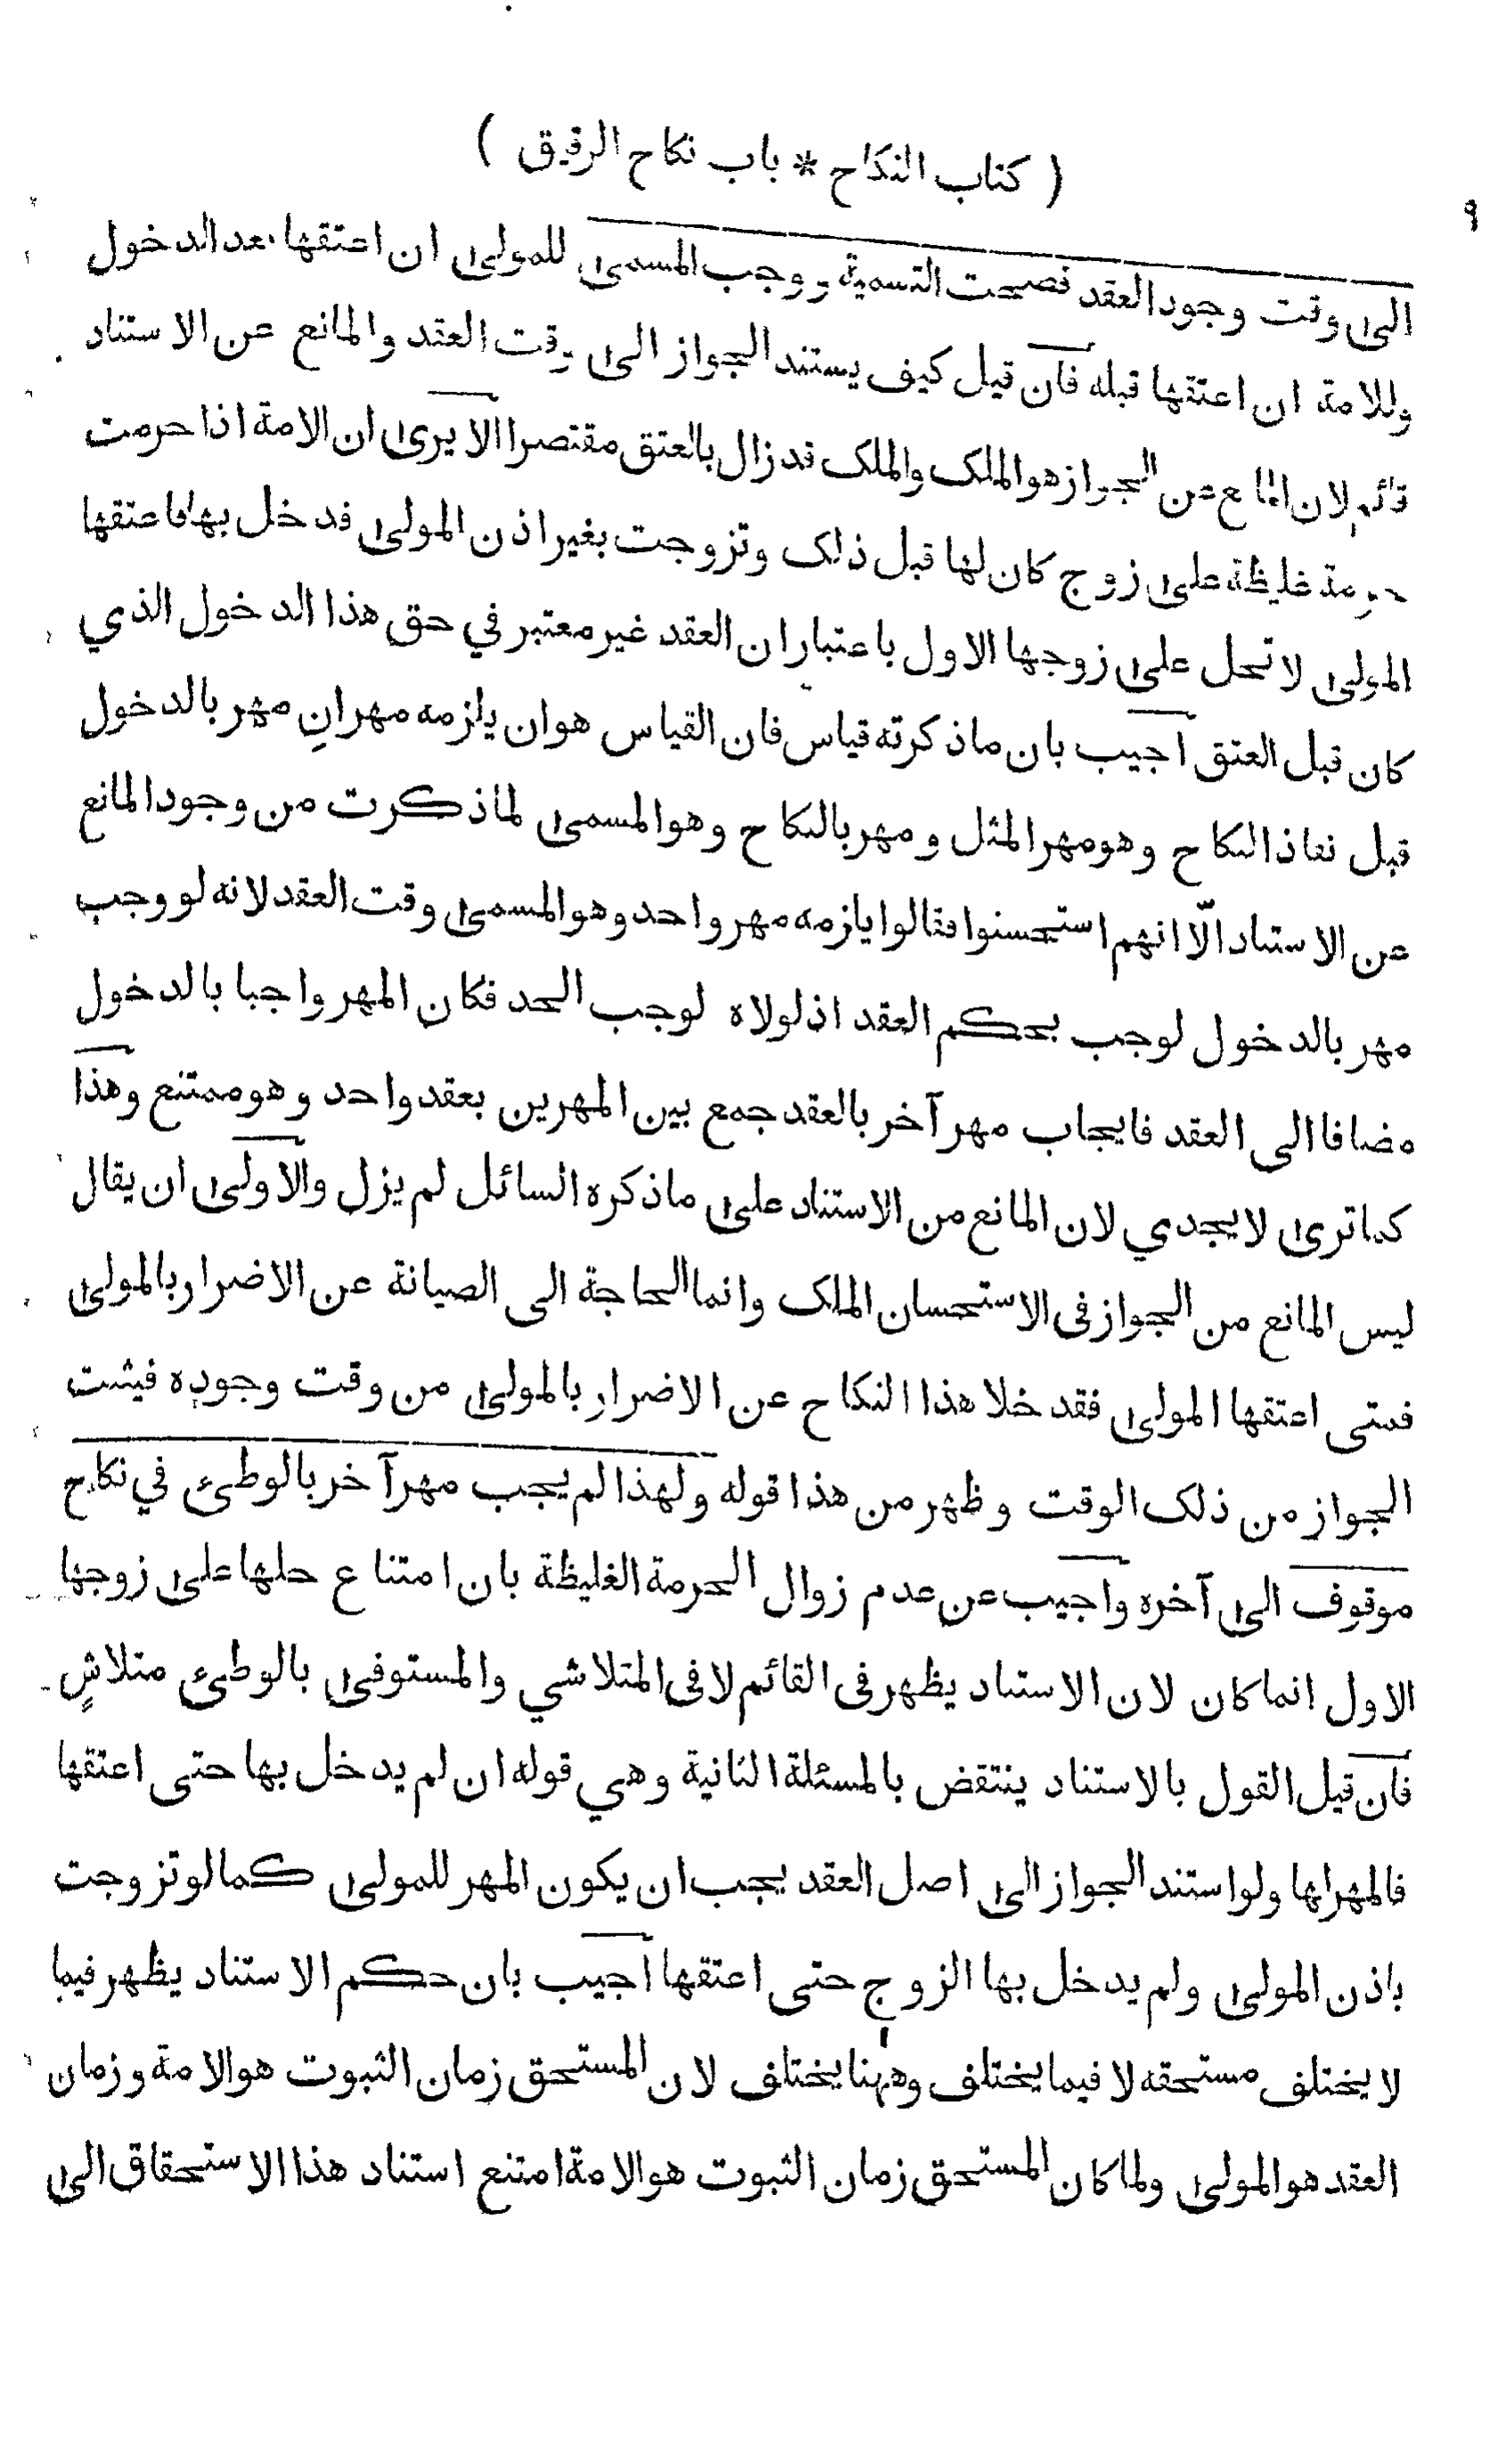 ( كتاب النكاح * باب نكاح الرقيق )
٩
الى وقت وجود العقد فصحت التسمية ووجب المسمى للمولى ان اعتقها بعد الدخول
وللامة ان اعتقها قبله فان قيل كيف يستند الجواز الى وقت العقد والمانع عن الاستناد
قائم لان المانع عن الجواز هو الملك والملك قد زال بالعتق مقتصرا الا يرى ان الامة اذا حرمت
حرمة غليظة على زوج كان لها قبل ذلك وتزوجت بغير اذن المولى فدخل بها فاعتقها
المولى لا تحل على زوجها الاول باعتبار ان العقد غير معتبر في حق هذا الدخول الذي
كان قبل العتق اجيب بان ما ذكرته قياس فان القياس هو ان يلزمه مهرانِ مهر بالدخول
قبل نفاذ النكاح وهو مهر المثل ومهر بالنكاح وهو المسمى لما ذكرت من وجود المانع
عن الاستناد الّا انهم استحسنوا فقالوا يلزمه مهر واحد وهو المسمى وقت العقد لانه لو وجب
مهر بالدخول لوجب بحكم العقد اذ لولاه لوجب الحد فكان المهر واجبا بالدخول
مضافا الى العقد فايجاب مهر آخر بالعقد جمع بين المهرين بعقد واحد وهو ممتنع وهذا
كما ترى لا يجدي لان المانع من الاستناد على ما ذكره السائل لم يزل والاولى ان يقال
ليس المانع من الجواز فى الاستحسان الملك وانما الحاجة الى الصيانة عن الاضرار بالمولى
فمتى اعتقها المولى فقد خلا هذا النكاح عن الاضرار بالمولى من وقت وجوده فيثبت
الجواز من ذلك الوقت وظهر من هذا قوله ولهذا لم يجب مهر آخر بالوطىء في نكاح
موقوف الى آخره واجيب عن عدم زوال الحرمة الغليظة بان امتناع حلها على زوجها
الاول انما كان لان الاستناد يظهر فى القائم لا فى المتلاشي والمستوفى بالوطىء متلاشٍ
فان قيل القول بالاستناد ينتقض بالمسئلة الثانية وهي قوله ان لم يدخل بها حتى اعتقها
فالمهر لها ولو استند الجواز الى اصل العقد يجب ان يكون المهر للمولى كما لو تزوجت
باذن المولى ولم يدخل بها الزوج حتى اعتقها اجيب بان حكم الاستناد يظهر فيما
لا يختلف مستحقه لا فيما يختلف وههنا يختلف لان المستحق زمان الثبوت هو الامة وزمان
العقد هو المولى ولما كان المستحق زمان الثبوت هو الامة امتنع استناد هذا الاستحقاق الى